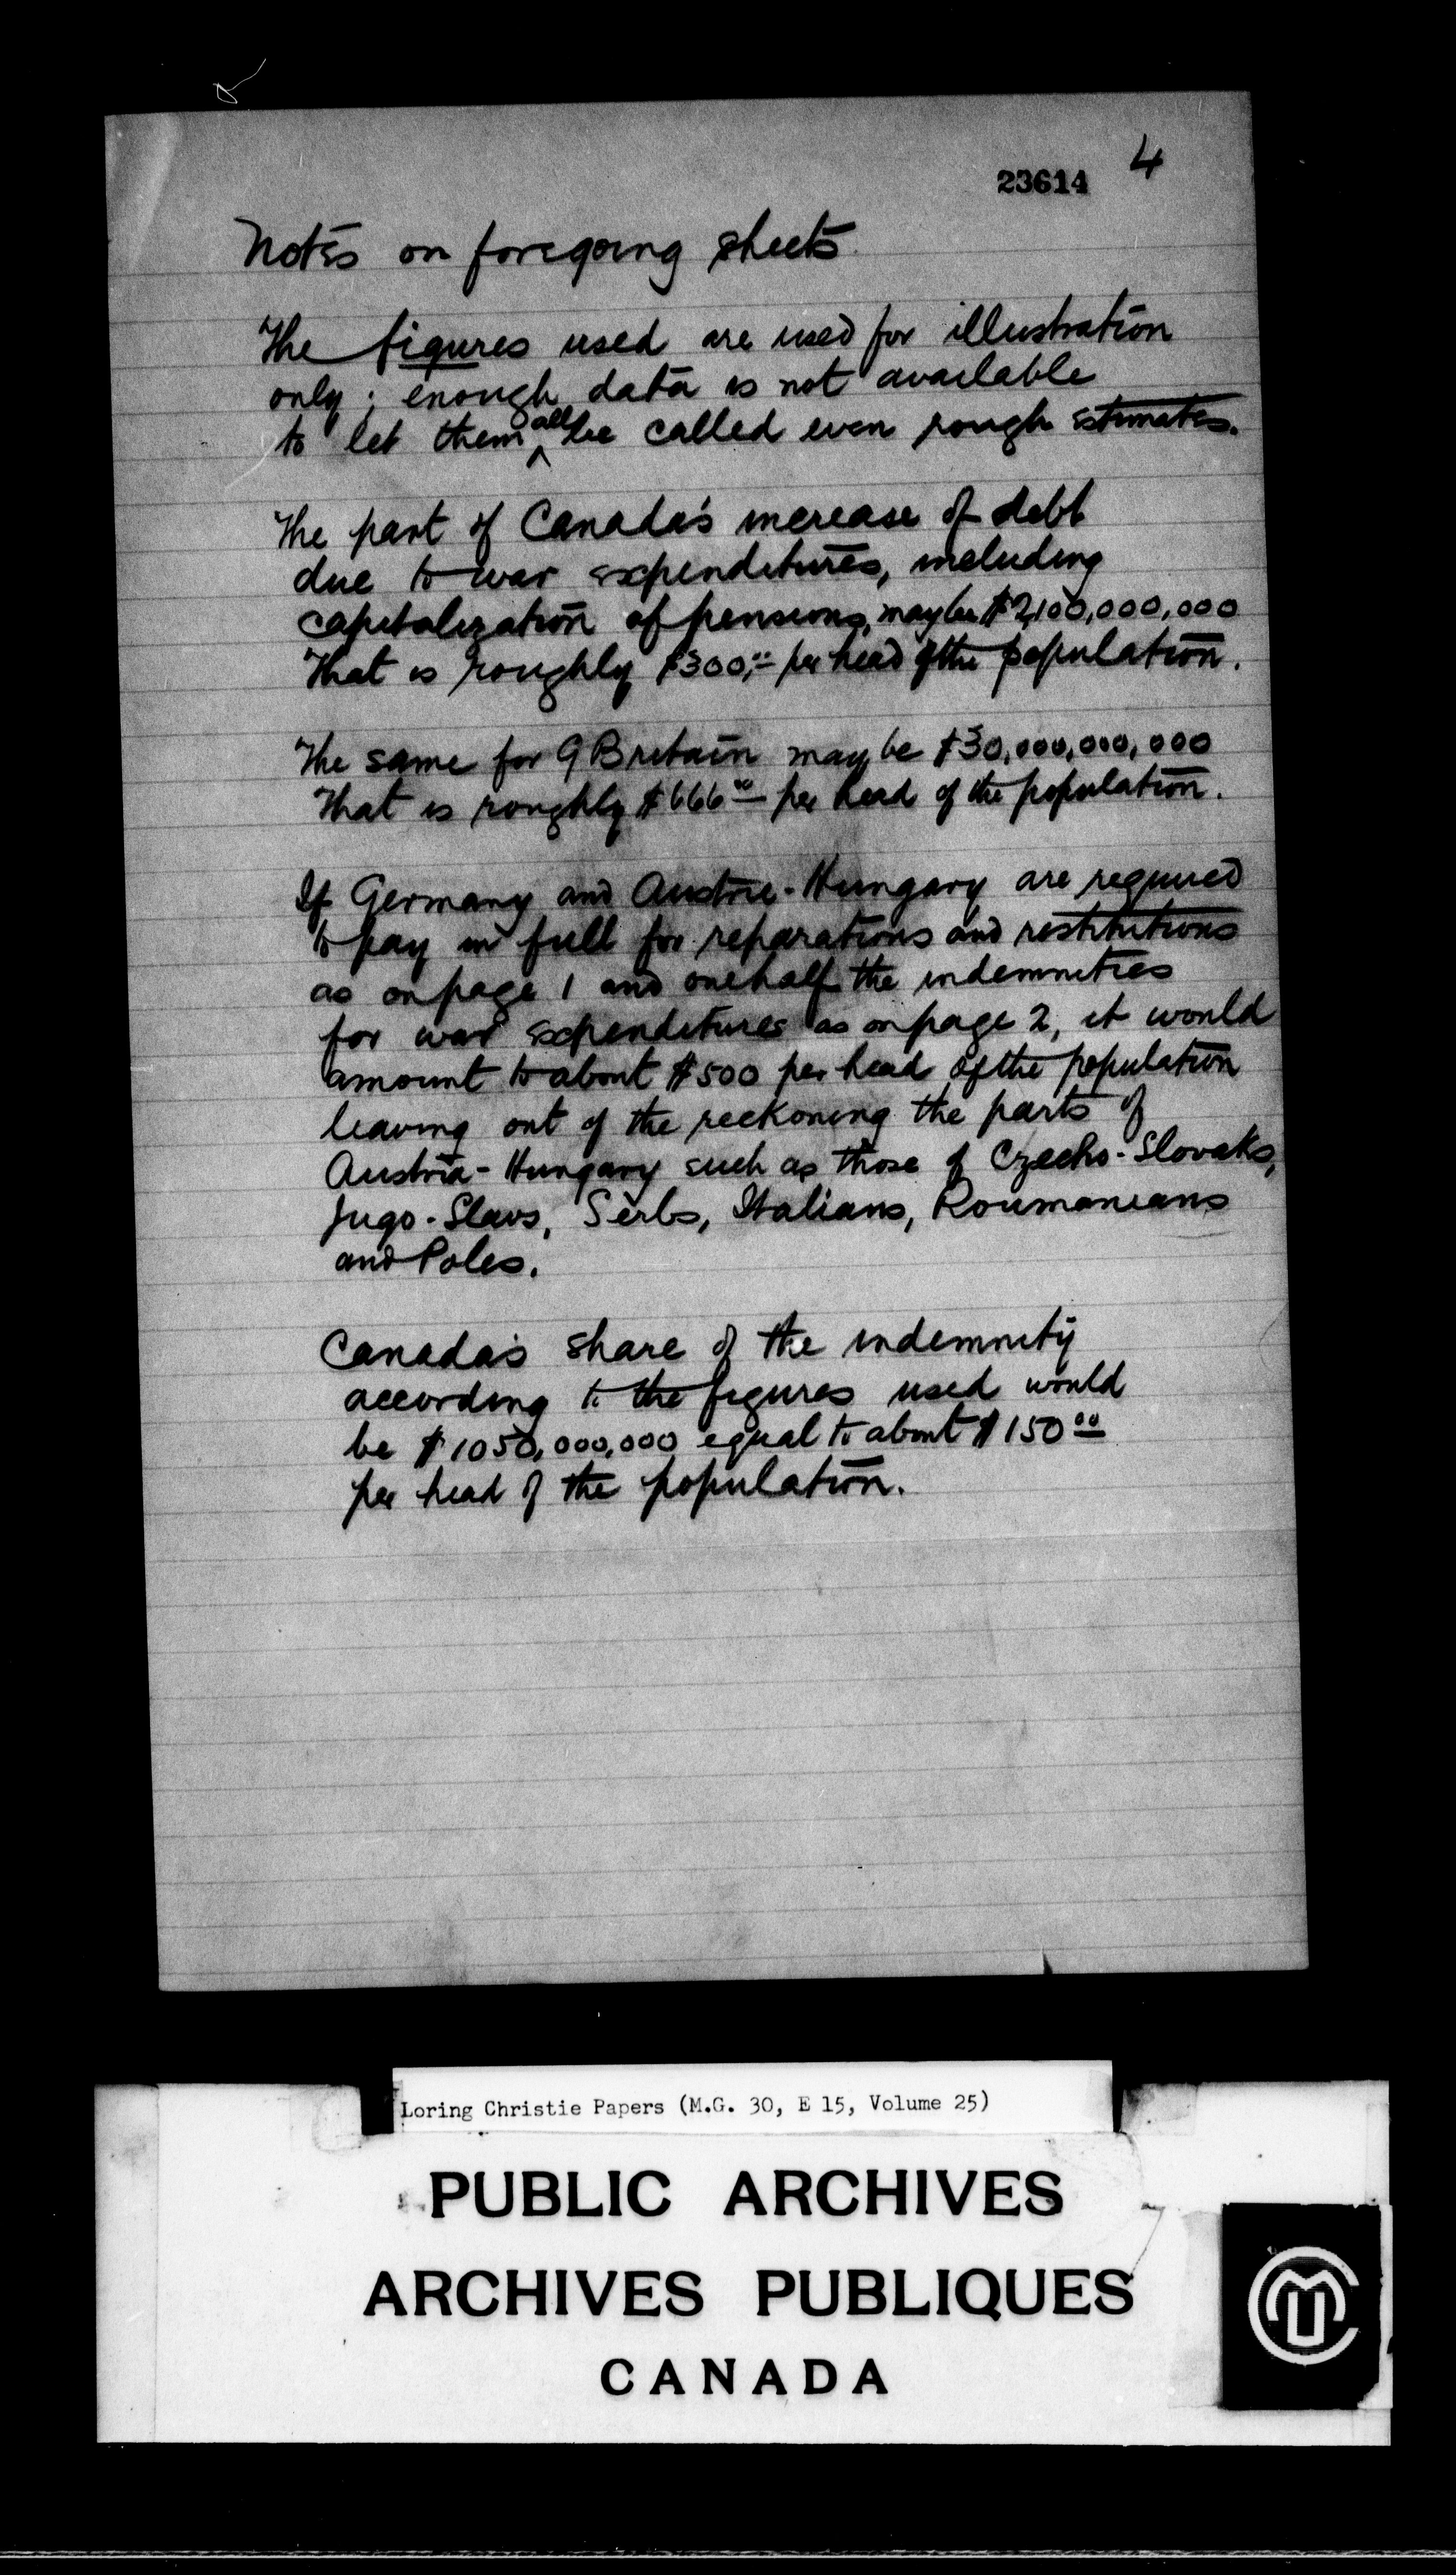 4
23614
Notes on foregoing sheets
The figures used are used for illustration
only; enough data is not available
to let them all be called even rough estimates.
The part of Canada's increase of debt
due to war expenditures, including
capitalization of pensions, may be $2,100,000,000
That is roughly $300.00 per head of the population.
The same for G Britain may be $30,000,000,000
That is roughly $666.00 per head of the population.
If Germany and Austria-Hungary are required
to pay in full for reparations and restitutions
as on page 1 and one half the indemnities
for war expenditures as on page 2, it would
amount to about $500 per head of the population
leaving out of the reckoning the parts of
Austria-Hungary such as those of Czecho-Slovaks,
Jugo-Slavs, Serbs, Italians, Roumanians
and Poles.
Canada's share of the indemnity
according to the figures used would
be $1050,000,000 equal to about $150 00
per head of the population.
Loring Christie Papers (M.G. 30, E 15, Volume 25)
PUBLIC ARCHIVES
ARCHIVES PUBLIQUES
CANADA